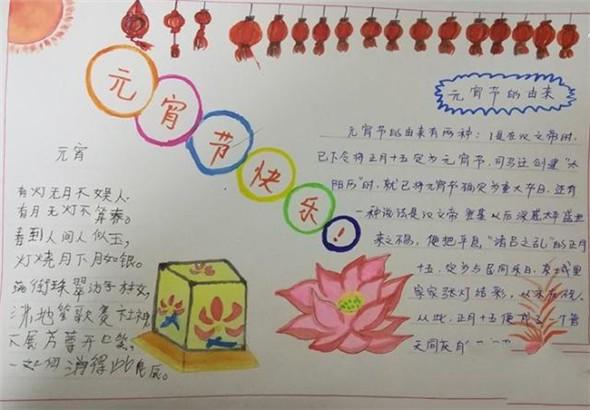 元宵节快乐!
元宵
有灯无月不娱人,
有月无灯不算春。
春到人间人似玉,
灯烧月下月如银。
满街珠翠游村女,
沸地笙歌赛社神。
不展芳尊开口笑,
如何消得此良辰。
元宵节的由来
元宵节的由来有两种:1是在汉文帝时,
已下令将正月十五定为元宵节,司马迁创建“太
阳历”时,就已将元宵节确定为重大节日,还有
一种说法是汉文帝登基以后深感太平盛世
来之不易,便把平息“诸吕之乱”的正月
十五,定为与民同乐日,京城里
家家张灯结彩,以示庆祝。
从此,正月十五便成了一个普
天同庆的